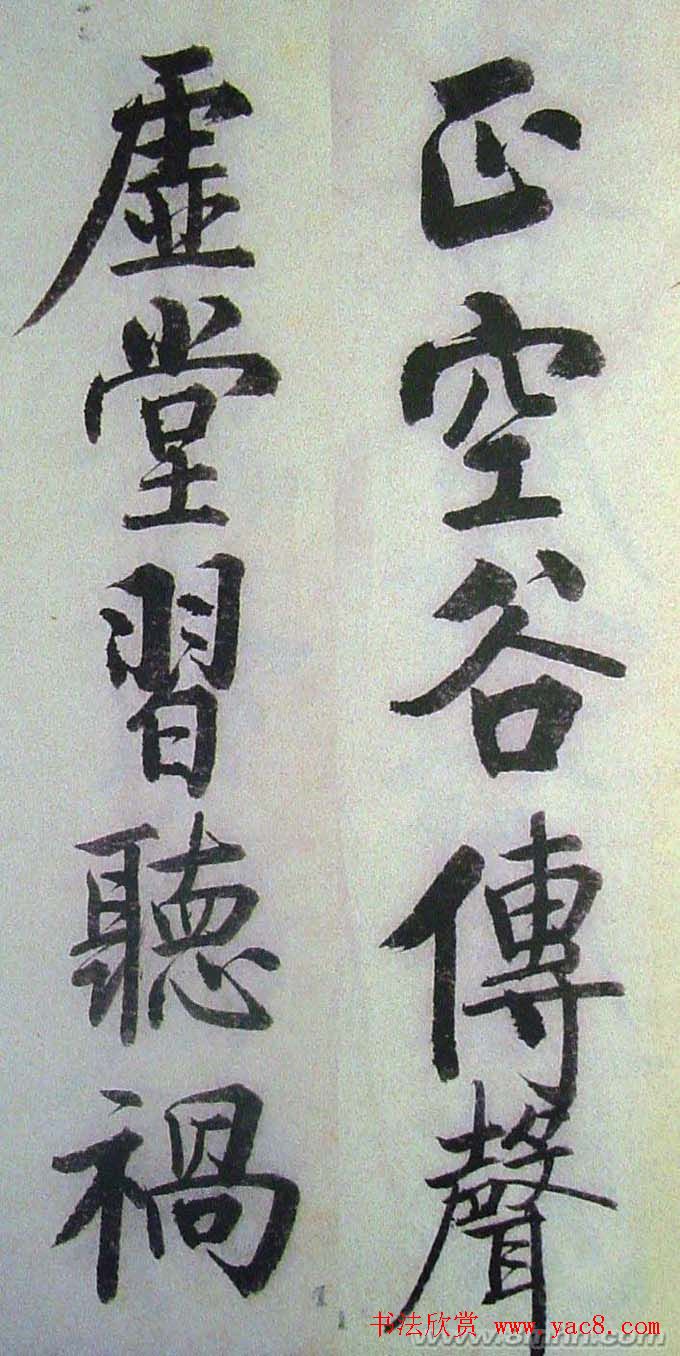 正空谷傳聲
虛堂習聽禍
书法欣赏 www.yac8.com